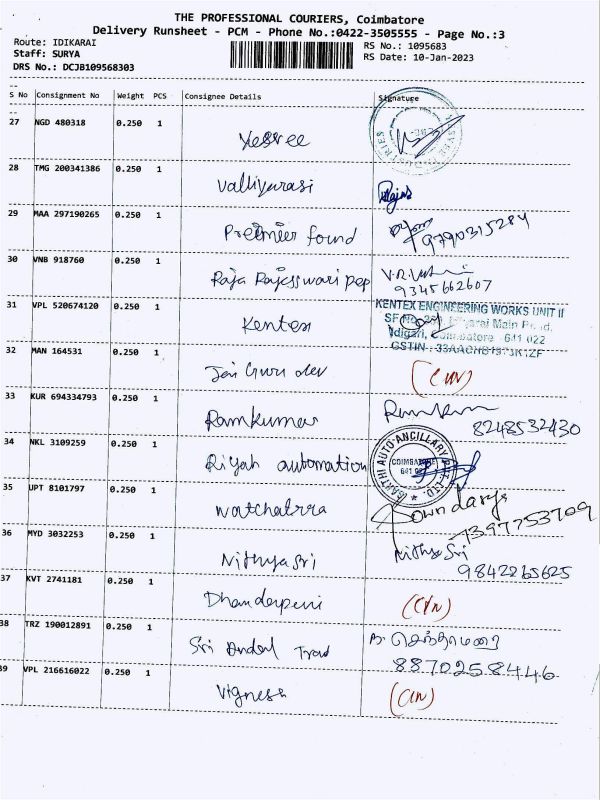 THE PROFESSIONAL COURIERS, Coimbatore
Delivery Runsheet - PCM - Phone No.:0422-3505555 - Page No.:3
Route: IDIKARAI
RS No.: 1095683
Staff: SURYA
RS Date: 10-Jan-2023
DRS No.: DCJB109568303
S No Consignment No Weight PCS Consignee Details Signature
27 NGD 480318 0.250 1
28 TMG 200341386 0.250 1 Valliyarasi
29 MAA 297190265 0.250 1 Preemier found
9790315284
30 VNB 918760 0.250 1 Raja Rajesswari pep
9345662607
31 VPL 520674120 0.250 1 Kentex
KENTEX ENGINEERING WORKS UNIT II
Idigari, Coimbatore - 641 022
32 MAN 164531 0.250 1 Jai Guru dev
33 KUR 694334793 0.250 1 Ramkumar
8248532430
34 NKL 3109259 0.250 1 Riyah automation
SAKTHI AUTO ANCILLARY PVT. LTD.
COIMBATORE
35 UPT 8101797 0.250 1
7397753709
36 MYD 3032253 0.250 1 Nithyasri Nithya Sri
9842265625
37 KVT 2741181 0.250 1
38 TRZ 190012891 0.250 1 Sri Andal Trad
செந்தாமரை
8870258446
39 VPL 216616022 0.250 1 Vignesh